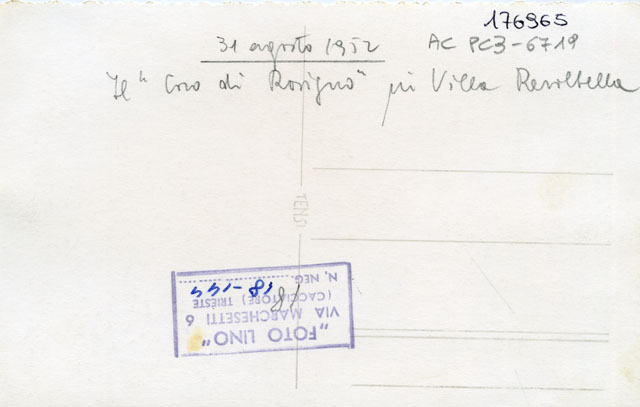 176965
31 agosto 1952
AC PC3-6719
Il "Coro di Rovigno" in Villa Revoltella
TENSI
"FOTO LINO"
VIA MARCHESETTI 6
(CACCIATORE) TRIESTE
N. NEG.
18